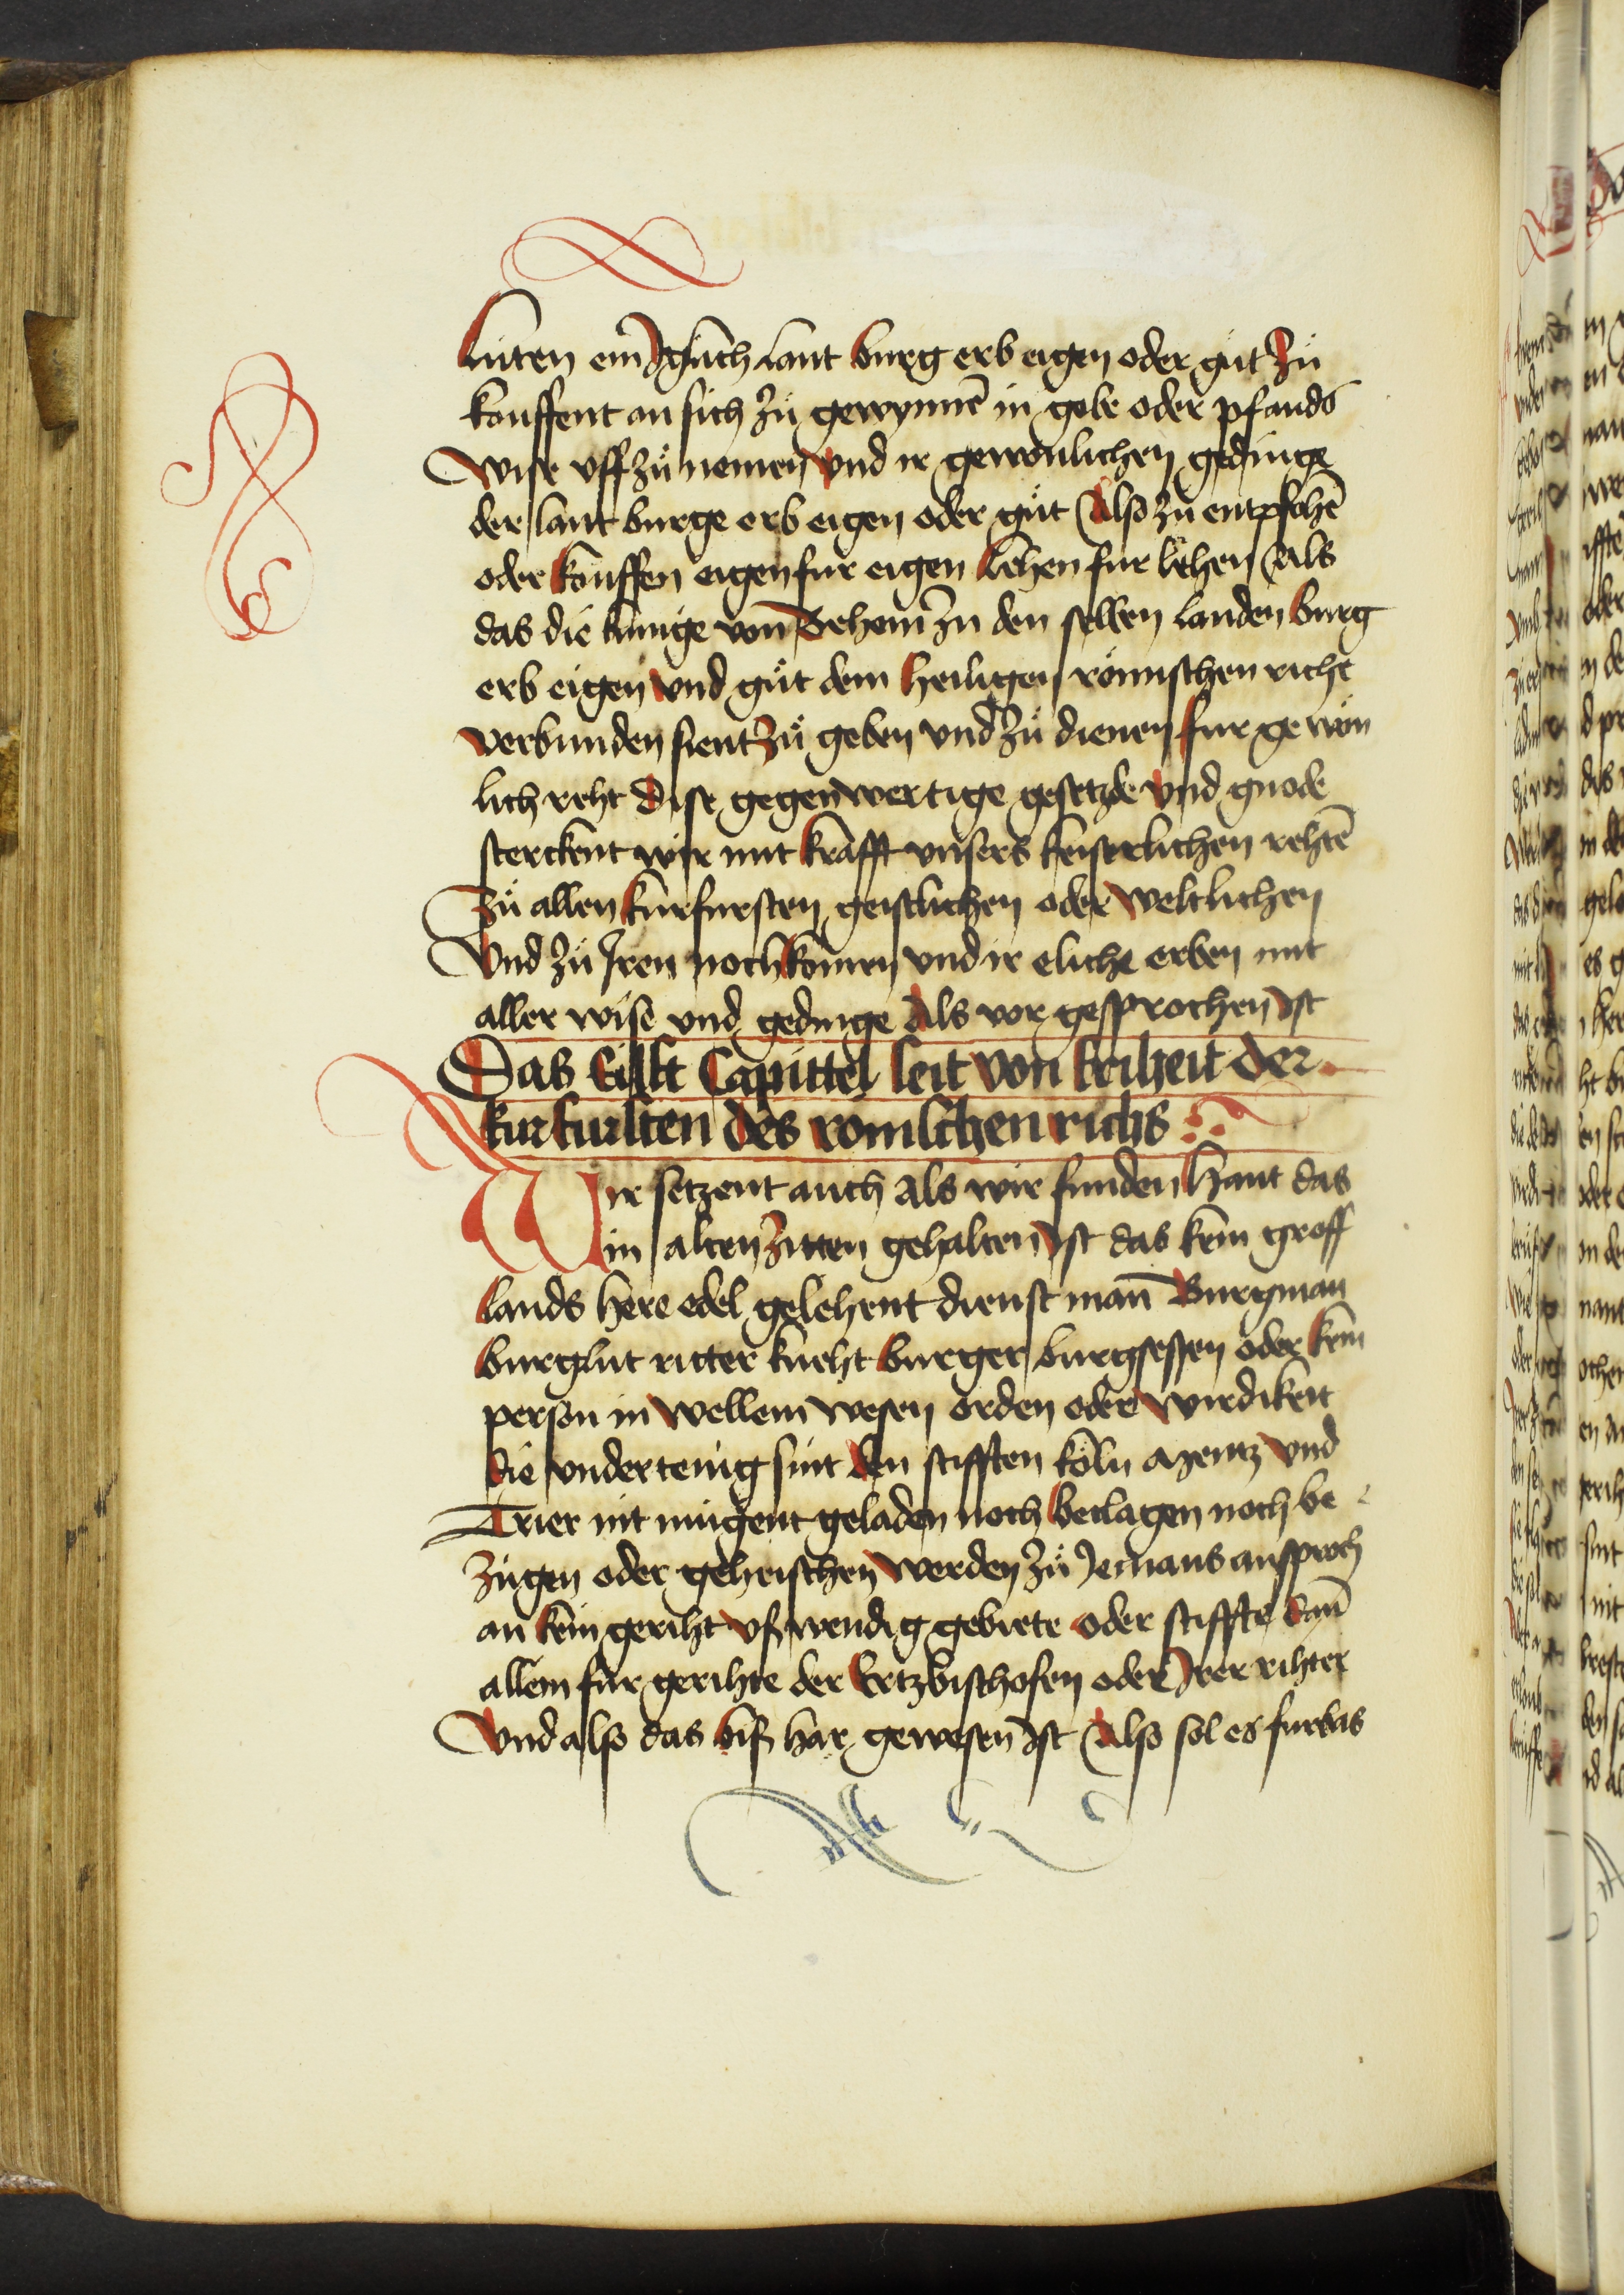 Lúten ein Jglich lant burg erb eigen oder gůt Zů
kouffent an sich zů gewynnē in gobe oder pfands
Wise vff zů nemen vnd ir gewonlichen gedinge
der lant burge erb eigen oder gůt Also zů entpfohē
oder kouffen eigen fur eigen Lehen fur lehen Als
das die kúnige von Behem Zu den selben landen burg
erb eigen vnd gůt dem heiligen römischen riche
verbunden sient Zů geben vnd Zů dienen fur gewon
lich reht Dise gegenwertige gesetzde vnd gnode
sterckent wir mit krafft vnsers keiserlichen rehtē
Zů allen kurfursten geistlichen oder weltlichen
Vnd Zů Jren nochkomen vnd ir eliche erben mit
aller wise vnd gedinge Als vor gesprochen Ist
Das Eilfft Capittel seit von friheit der
kurfursten des romschen richs
Wir setzent auch Als wir funden Hant das
in alten Zitten gehalten Ist das kein groff
Lands here edel gelehent dienst man Burgman
burglut ritter kneht burger burgsessen oder kein
person in wellem wesen orden oder wirdikeit
die vndertenig sint den stifften köln mentz vnd
Trier nit múgent geladen noch beclagen noch be
zúgen oder geheischen werden Zů Jemans ansproch
an kein geriht vswendig gebiete oder stiffte dañ
allein fúr gerihte der Ertzbischofen oder Jrer rihter
Vnd also das bis har gewesen Ist Also sol es furbas